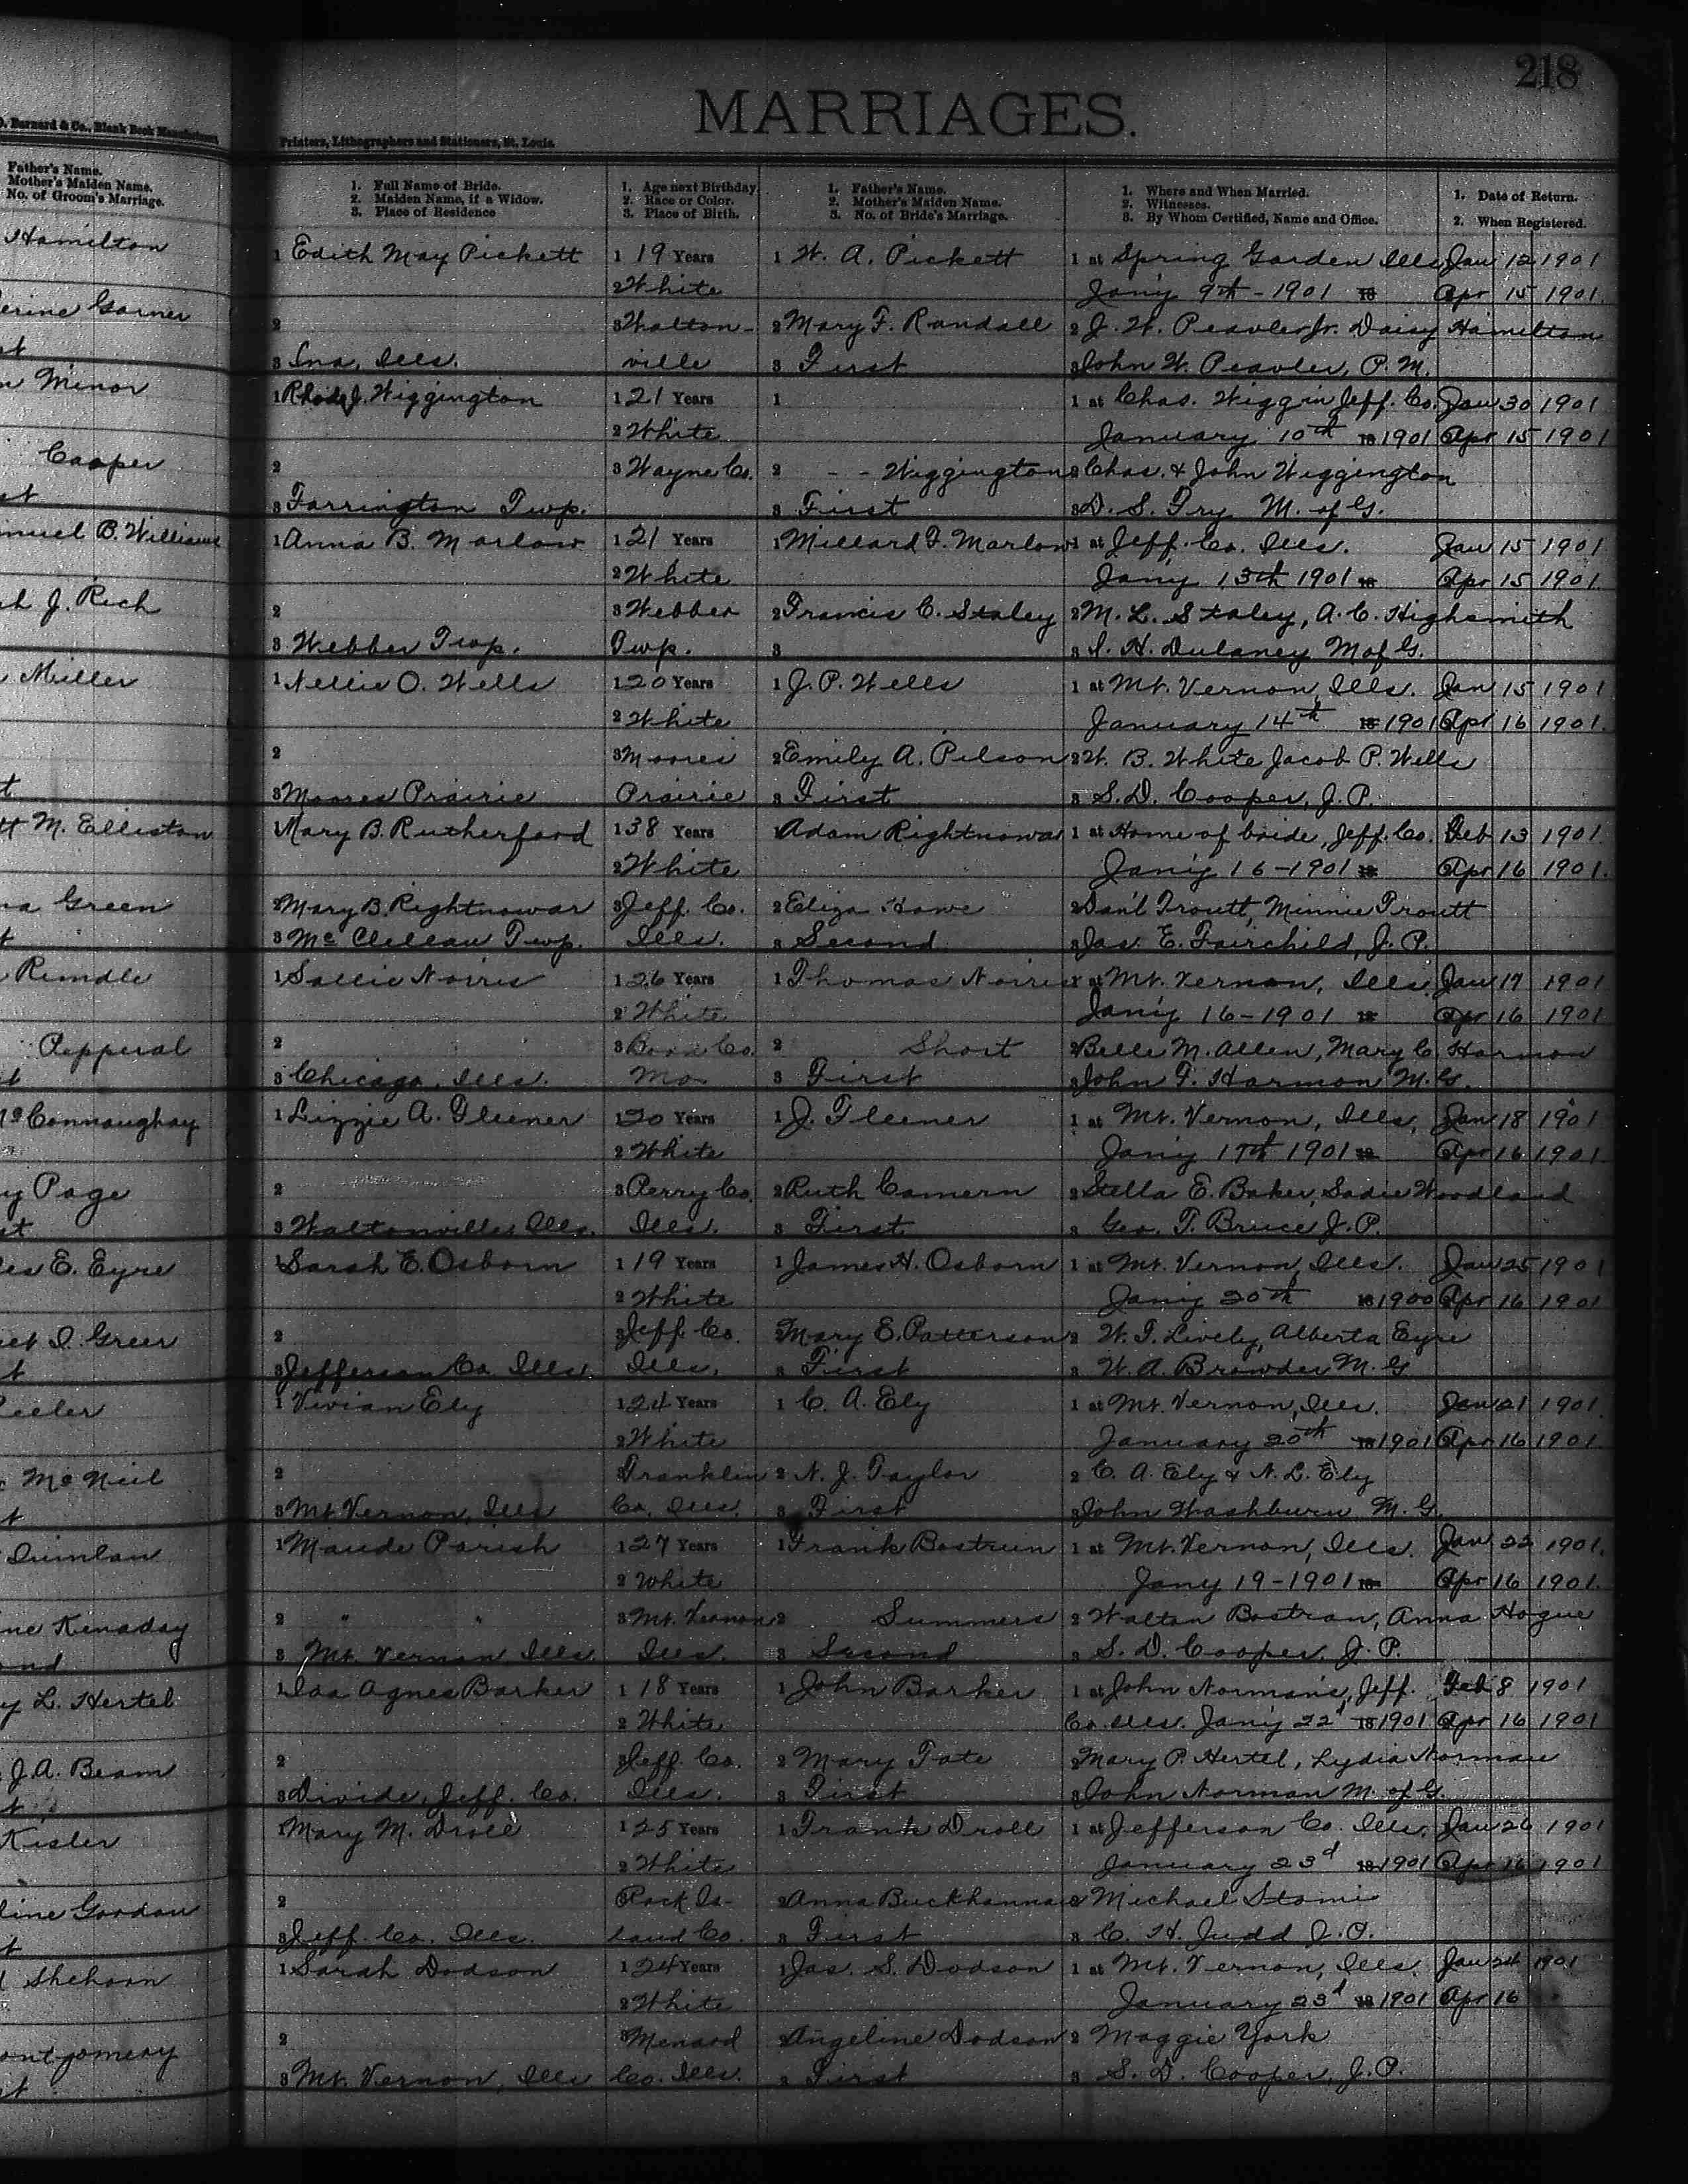 218
MARRIAGES.
D. Barnard & Co., Blank Book Manufacturers,
Printers, Lithographers and Stationers, St. Louis.
Father's Name.
Mother's Maiden Name.
No. of Groom's Marriage.
1. Full Name of Bride.
2. Maiden Name, if a Widow.
3. Place of Residence
1. Age next Birthday
2. Race or Color.
3. Place of Birth.
1. Father's Name.
2. Mother's Maiden Name.
3. No. of Bride's Marriage.
1. Where and When Married.
2. Witnesses.
3. By Whom Certified, Name and Office.
1. Date of Return.
2. When Registered.
Hamilton
1 Edith May Pickett 1 19 Years 1 W. A. Pickett 1 at Spring Garden Ills Jan 12 1901
2 White Jan'y 9th - 1901 18 Apr 15 1901.
erine Garner
2 3 Walton- 2 Mary F. Randall 2 J. W. Peavler Jr. Daisy Hamilton
st
3 Ina, Ills. ville 3 First 3 John W. Peavler, P. M.
n Minor
1 Rhoda J. Wiggington 1 21 Years 1 1 at Chas. Wiggin Jeff. Co. Jan 30 1901
2 White January 10th 18 1901 Apr 15 1901
Cooper
2 3 Wayne Co. 2 - - Wiggington 2 Chas. & John Wiggington
st
3 Farrington Twp. 3 First 3 D. S. Fry M. of G.
muel B. Williams
1 Anna B. Marlow 1 21 Years 1 Millard F. Marlow 1 at Jeff. Co. Ills. Jan 15 1901
2 White Jan'y 13th 1901 18 Apr 15 1901.
ah J. Rich
2 3 Webber 2 Francis C. Staley 2 M. L. Staley, A. C. Highsmith
3 Webber Twp. Twp. 3 3 S. H. Dulaney M of G.
Miller
1 Nellie O. Wells 1 20 Years 1 J. P. Wells 1 at Mt. Vernon, Ills. Jan 15 1901
2 White January 14th 18 1901 Apr 16 1901.
2 3 Moores 2 Emily A. Pilson 2 W. B. White Jacob P. Wells
t
3 Moores Prairie Prairie 3 First 3 S. D. Cooper, J. P.
tt M. Elliston
1 Mary B. Rutherford 1 38 Years 1 Adam Rightnowar 1 at Home of bride, Jeff. Co. Feb 13 1901.
2 White Jan'y 16 - 1901 18 Apr 16 1901.
na Green
2 Mary B. Rightnowar 3 Jeff. Co. 2 Eliza Howe 2 Dan'l Troutt, Minnie Troutt
t
3 Mc Clellan Twp. Ills. 3 Second 3 Jas. E. Fairchild, J. P.
Rindle
1 Sallie Norris 1 26 Years 1 Thomas Norris 1 at Mt. Vernon, Ills. Jan 17 1901
2 White Jan'y 16 - 1901 18 Apr 16 1901
Pepperal
2 3 Boon Co. 2 Short 2 Belle M. Allen, Mary C. Harmon
st
3 Chicago, Ills. Mo. 3 First 3 John F. Harmon M. G.
McConnaughay
1 Lizzie A. Fleener 1 20 Years 1 J. Fleener 1 at Mt. Vernon, Ills, Jan 18 1901
2 White Jan'y 17th 1901 18 Apr 16 1901
y Page
2 3 Perry Co. 2 Ruth Camern 2 Stella E. Baker, Sadie Woodland
st
3 Waltonville, Ills. Ills. 3 First 3 Geo. T. Bruce J. P.
es E. Eyre
1 Sarah E. Osborn 1 19 Years 1 James H. Osborn 1 at Mt. Vernon, Ills. Jan 25 1901
2 White Jan'y 20th 18 1900 Apr 16 1901
et I. Greer
2 3 Jeff. Co. 2 Mary E. Patterson 2 W. T. Lively, Alberta Eyre
t
3 Jefferson Co. Ills. Ills. 3 First 3 W. A. Browder M. G
eeler
1 Vivian Ely 1 24 Years 1 C. A. Ely 1 at Mt. Vernon, Ills. Jan 21 1901.
2 White January 20th 18 1901 Apr 16 1901.
McNeil
2 3 Franklin 2 N. J. Taylor 2 C. A. Ely & N. L. Ely
t
3 Mt. Vernon, Ills Co. Ills. 3 First 3 John Washburn M. G.
Quinlan
1 Maude Parish 1 27 Years 1 Frank Bostrun 1 at Mt. Vernon, Ills. Jan 22 1901.
2 White Jany 19 - 1901 18 Apr 16 1901.
ne Kinaday
2 " " 3 Mt. Vernon 2 Summers 2 Walton Bostran, Anna Hogue
ond
3 Mt. Vernon Ills. Ills. 3 Second 3 S. D. Cooper, J. P.
y L. Hertel
1 Ida Agnes Barker 1 18 Years 1 John Barker 1 at John Norman's, Jeff. Feb 8 1901
2 White Co. Ills. Jan'y 22d 18 1901 Apr 16 1901
J. A. Beam
2 3 Jeff. Co. 2 Mary Tate 2 Mary P. Hertel, Lydia Norman
t
3 Divide, Jeff. Co. Ills. 3 First 3 John Norman M. of G.
Kisler
1 Mary M. Droll 1 25 Years 1 Frank Droll 1 at Jefferson Co. Ills. Jan 26 1901
2 White January 23d 18 1901 Apr 16 1901
line Gordon
2 3 Rock Is- 2 Anna Buckhannan 2 Michael Stomi
t
3 Jeff. Co. Ills. land Co. 3 First 3 C. H. Judd J. P.
Shehorn
1 Sarah Dodson 1 24 Years 1 Jas. S. Dodson 1 at Mt. Vernon, Ills. Jan 24 1901
2 White January 23d 18 1901 Apr 16
ontgomery
2 3 Menard 2 Angeline Dodson 2 Maggie York
st
3 Mt. Vernon, Ills Co. Ills. 3 First 3 S. D. Cooper, J. P.